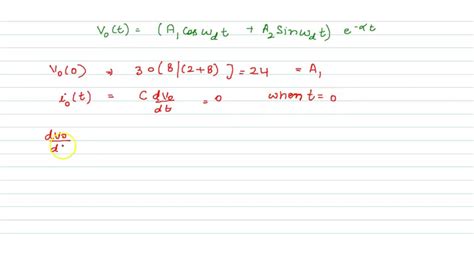 V₀(t) = (A₁ Cos ω_d t + A₂ Sin ω_d t) e^-αt
V₀(0) → 30(8/(2+8)) = 24 = A₁
i₀(t) = C dV₀/dt = 0 when t = 0
dV₀/d